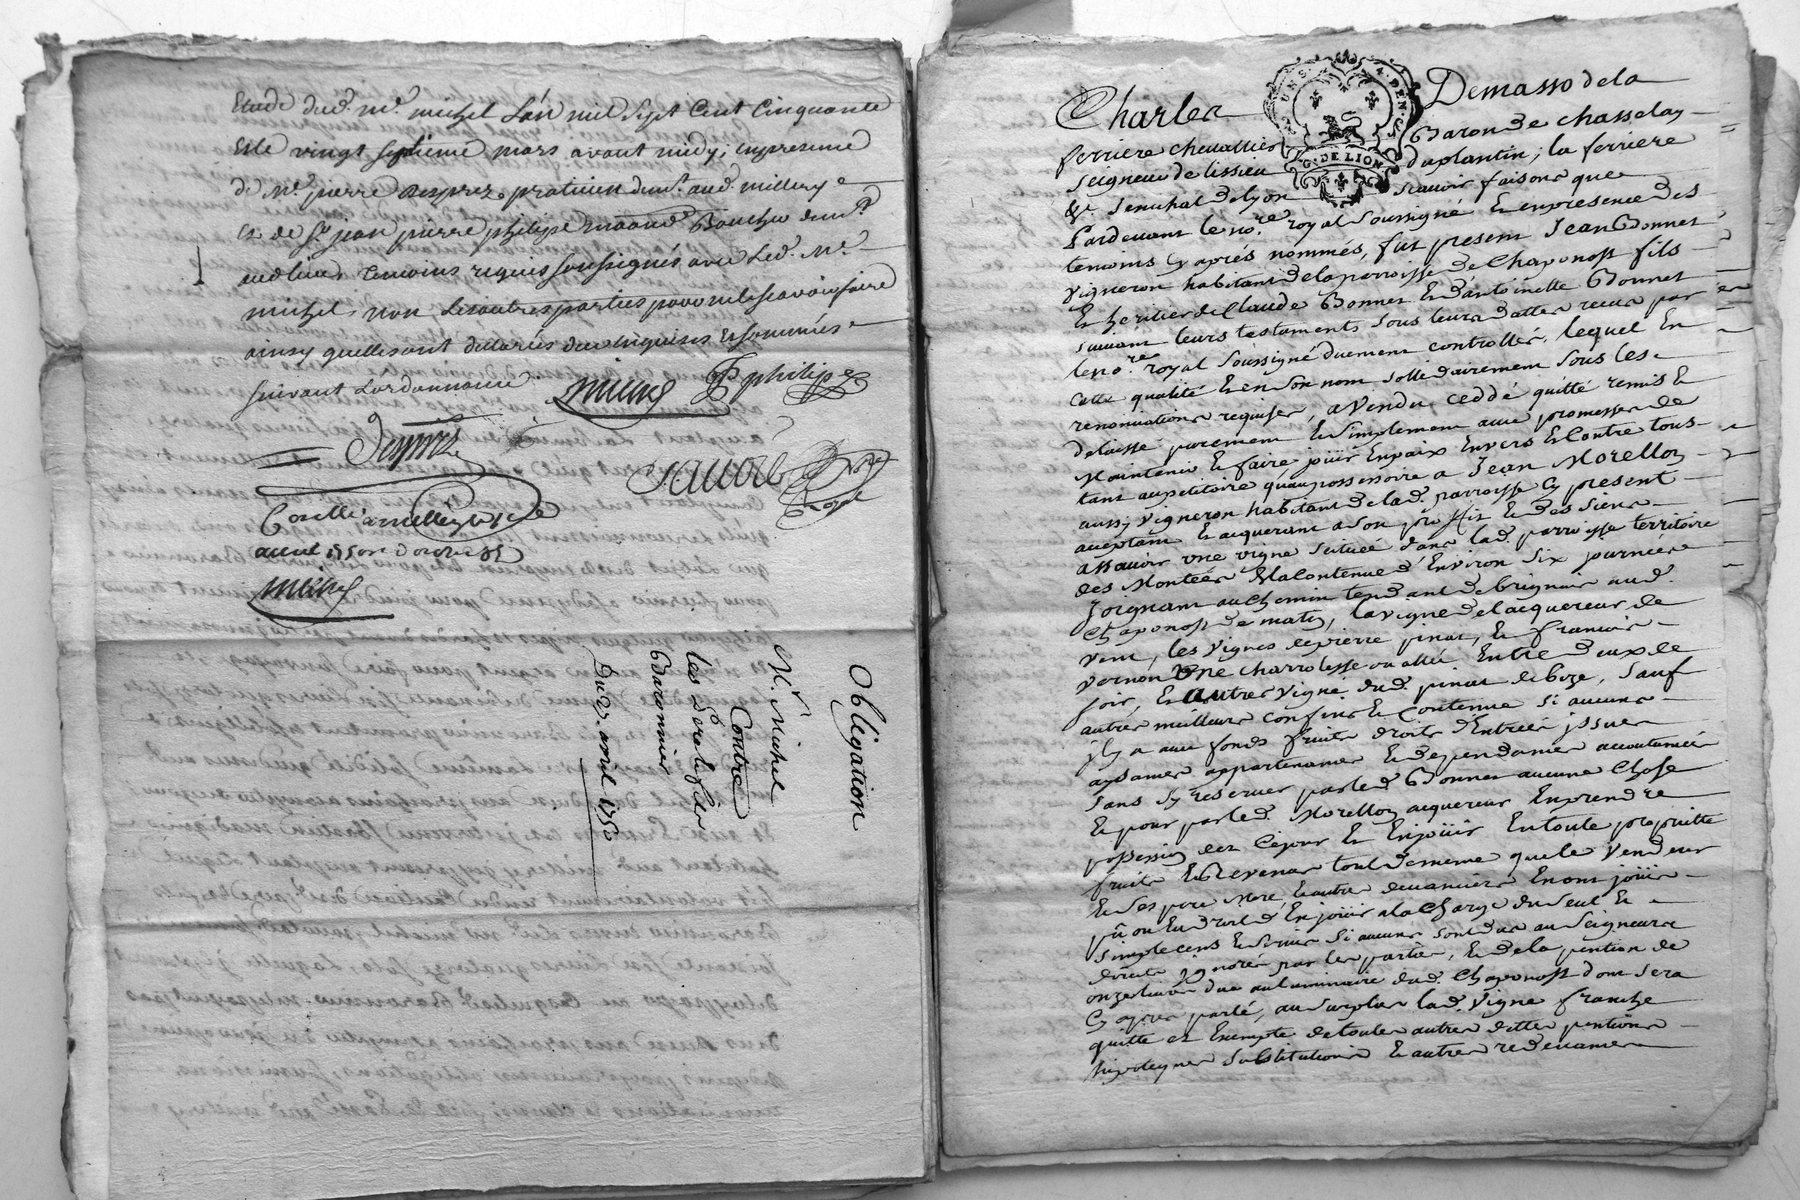 Etude dud. me. michel L'an mil sept Cent Cinquante
Et le vingt septieme mars avant midy; en presence
de Me. pierre Desprez praticien demt. aud. millery
Et de Sr. jean pierre philipe Boucher demt.
aud lieu temoins requis soussignés avec Led. Me.
michel, non Les autres parties pour ne le scavoir faire
ainsy qu'elles ont declarées duement requises Et sommées
suivant L'ordonnance.
michel JP philipe
Desprez
Conllé a millery le
avril 1750 Reçu douze s
michel
Obligation
Me. Michel
Contre
Les pere & fils
Baromier
Du 27. avril 1750
G. DE LION
Charles Demasso de la
ferriere chevallier Baron de chasselay
seigneur de lissieu duplantin; la ferriere
&c. senechal de lyon scavoir faisons que
Pardevant le no.re royal soussigné Et en presence des
temoins cy aprés nommés, fut present Jean Bonnet
vigneron habitant de la parroisse de Chaponost fils
Et heritier de Claude Bonnet Et d'antoinette Bonnet
suivant leurs testaments sous leurs dattes recus par
le no.re royal soussigné duement controllés, lequel En
cette qualité Et en son nom sollidairement sous les
renonciations requises, a vendu ceddé quitté remis &
delaissé purement Et simplement avec promesse de
Maintenir Et faire joüir En paix Envers Et Contre tous
tant au petitoire qu'au possessoire a Jean Morellon
aussy vigneron habitant de lad. parroisse cy present
acceptant Et acquerant a son proffit Et des siens
assavoir une vigne scituée dans lad. parroisse territoire
des Montées De la Contenue d'Environ six journées
Joignant au Chemin tendant de brignais aud.
Chaponost de matin, la vigne de l'acquereur de
vent, les vignes de pierre pinat, Et francois
vernon Une charrolesse ou allée Entre deux de
soir, Et autre vigne dud. pinat de bize, sauf
autres meilleurs confins Et Contenue si aucuns
il y a avec fonds fruits droits d'Entrées issues
aysances appartenances Et dependances accoutumées
sans s'y reserver par led. Bonnet aucune Chose
Et pour par led. Morellon acquereur En prendre
possession dez Cejour Et En joüir En toute proprietté
fruits Et Revenus tout de meme que le vendeur
Et ses pere Mere Et autres devanciers En ont joüis
pû ou Eu droit d'En joüir a la Charge du seul &
simple cens Et servis si aucuns sont dus au seigneurs
directs ignorés par les parties, Et de la pention de
onze livres due au luminaire dud. Chaponost dont sera
cy aprés parlé, au surplus lad. vigne franche
quitte et Exempte de toutes autres dettes pentions
hipoteques substitutions Et autres redevances